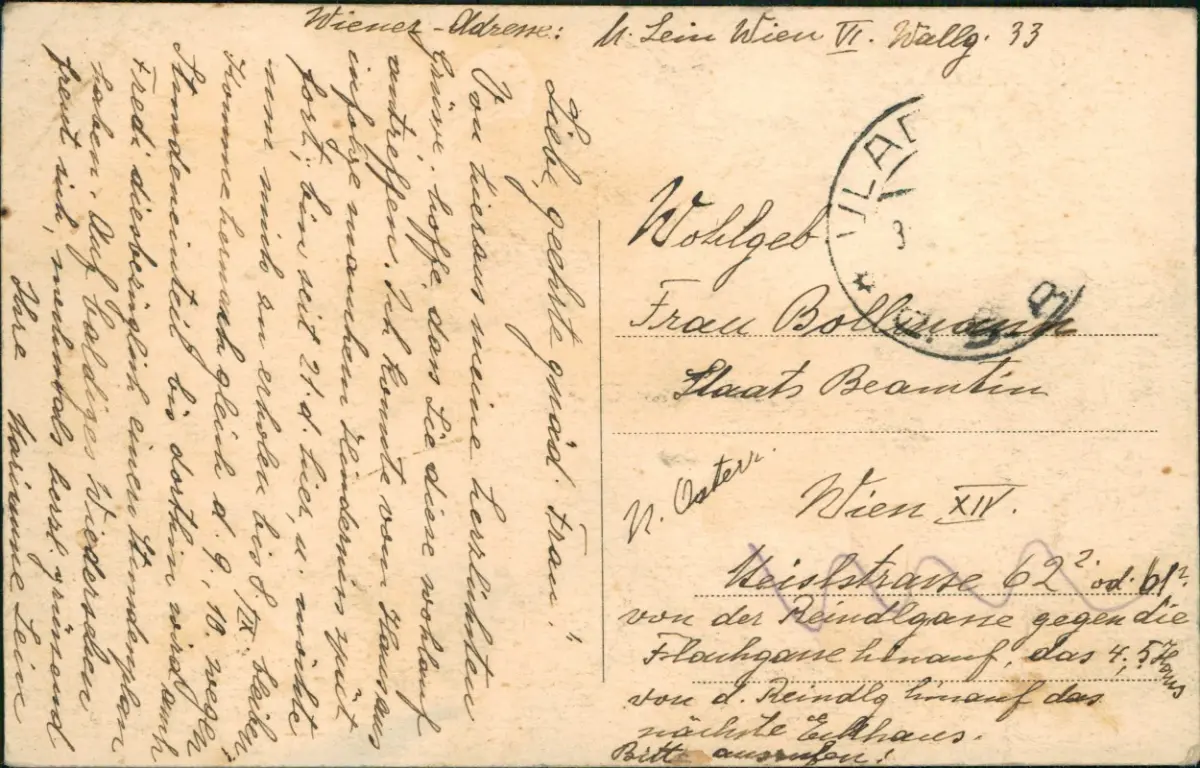 Wiener-Adresse: M. Lein Wien VI. Wallg. 33
Liebe, geehrte gnäd. Frau!
Von hieraus meine herzlichsten
Grüsse, hoffe, dass Sie diese wohlauf
antreffen. Ich konnte von Hausaus
infolge manchem Hindernis spät
fort, bin seit 21. d. hier, u. möchte
mich zu erholen bis 8. IX. bleiben
Komme hernach gleich d. 9., 10. wegen
Stundeneinteil bis dorthin wird auch
Fredi diesbezüglich einen Stundenplan
haben. Auf baldiges Wiedersehen
freut sich, mehrmals herzl. grüssend
Ihre Marianne Lein
Wohlgeb
Frau Bollmann
Staats Beamtin
N. Österr.
Wien XIV.
Heislstrasse 62? od. 61?
von der Reindlgasse gegen die
Flachgasse hinauf, das 4., 5. Haus
von d. Reindlg hinauf das
nächste Eckhaus.
Bitte ausrufen!